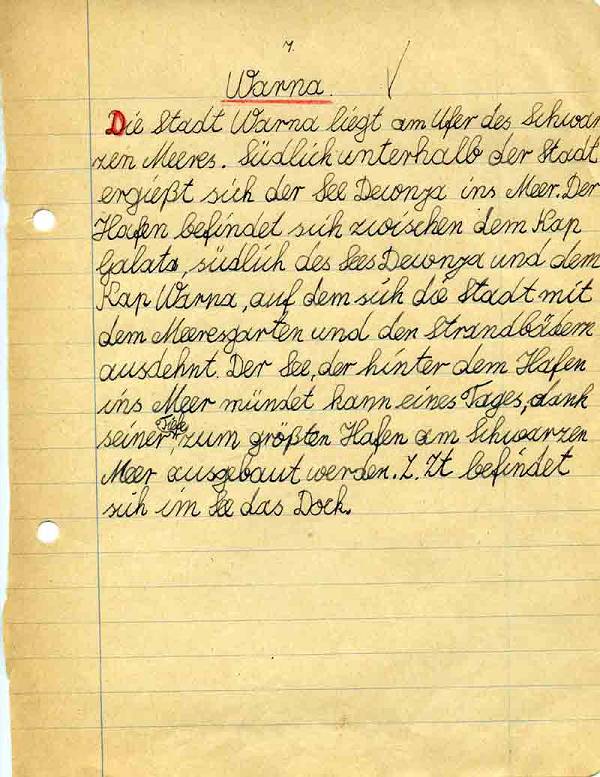 7.
Warna.
Die Stadt Warna liegt am Ufer des Schwar
zen Meeres. Südlich unterhalb der Stadt
ergießt sich der See Dewonza ins Meer. Der
Hafen befindet sich zwischen dem Kap
Galata, südlich des Sees Dewonza und dem
Kap Warna, auf dem sich die Stadt mit
dem Meeresgarten und den Strandbädern
ausdehnt. Der See, der hinter dem Hafen
ins Meer mündet kann eines Tages, dank
seiner Tiefe, zum größten Hafen am Schwarzen
Meer ausgebaut werden. Z. Zt befindet
sich im See das Dock.